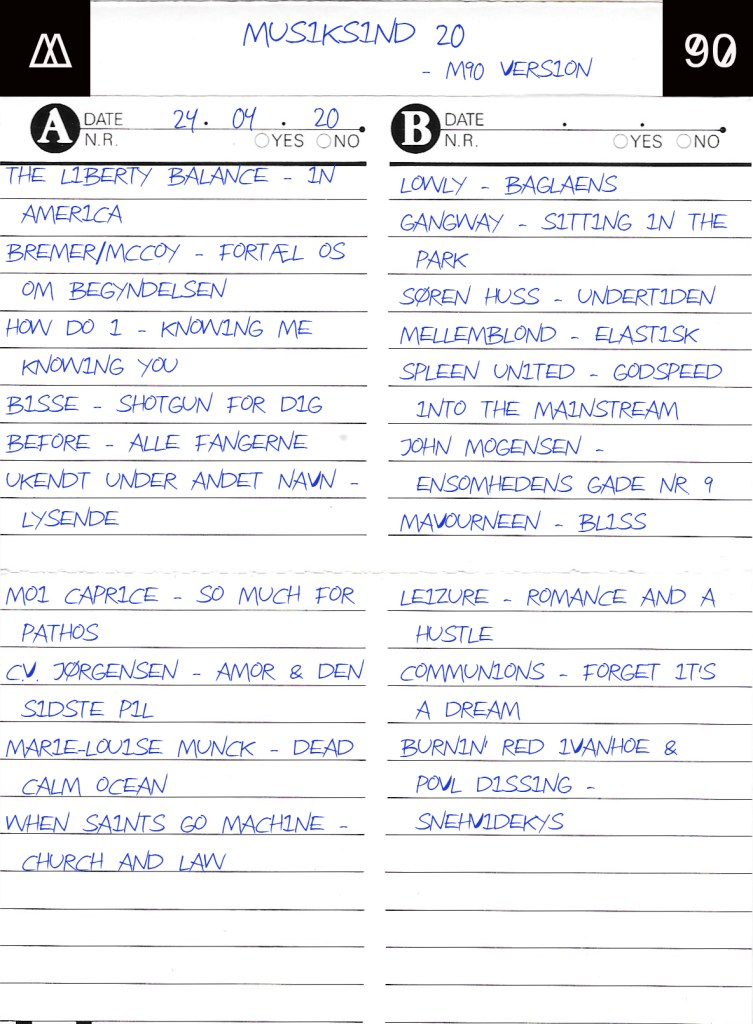 MUSIKSIND 20
- M90 VERSION
90
A DATE 24. 04. 20
N.R. YES NO
THE LIBERTY BALANCE - IN
AMERICA
BREMER/MCCOY - FORTÆL OS
OM BEGYNDELSEN
HOW DO I - KNOWING ME
KNOWING YOU
BISSE - SHOTGUN FOR DIG
BEFORE - ALLE FANGERNE
UKENDT UNDER ANDET NAVN -
LYSENDE
MOI CAPRICE - SO MUCH FOR
PATHOS
C.V. JØRGENSEN - AMOR & DEN
SIDSTE PIL
MARIE-LOUISE MUNCK - DEAD
CALM OCEAN
WHEN SAINTS GO MACHINE -
CHURCH AND LAW
B DATE . .
N.R. YES NO
LOWLY - BAGLAENS
GANGWAY - SITTING IN THE
PARK
SØREN HUSS - UNDERTIDEN
MELLEMBLOND - ELASTISK
SPLEEN UNITED - GODSPEED
INTO THE MAINSTREAM
JOHN MOGENSEN -
ENSOMHEDENS GADE NR 9
MAVOURNEEN - BLISS
LEIZURE - ROMANCE AND A
HUSTLE
COMMUNIONS - FORGET IT'S
A DREAM
BURNIN' RED IVANHOE &
POVL DISSING -
SNEHVIDEKYS